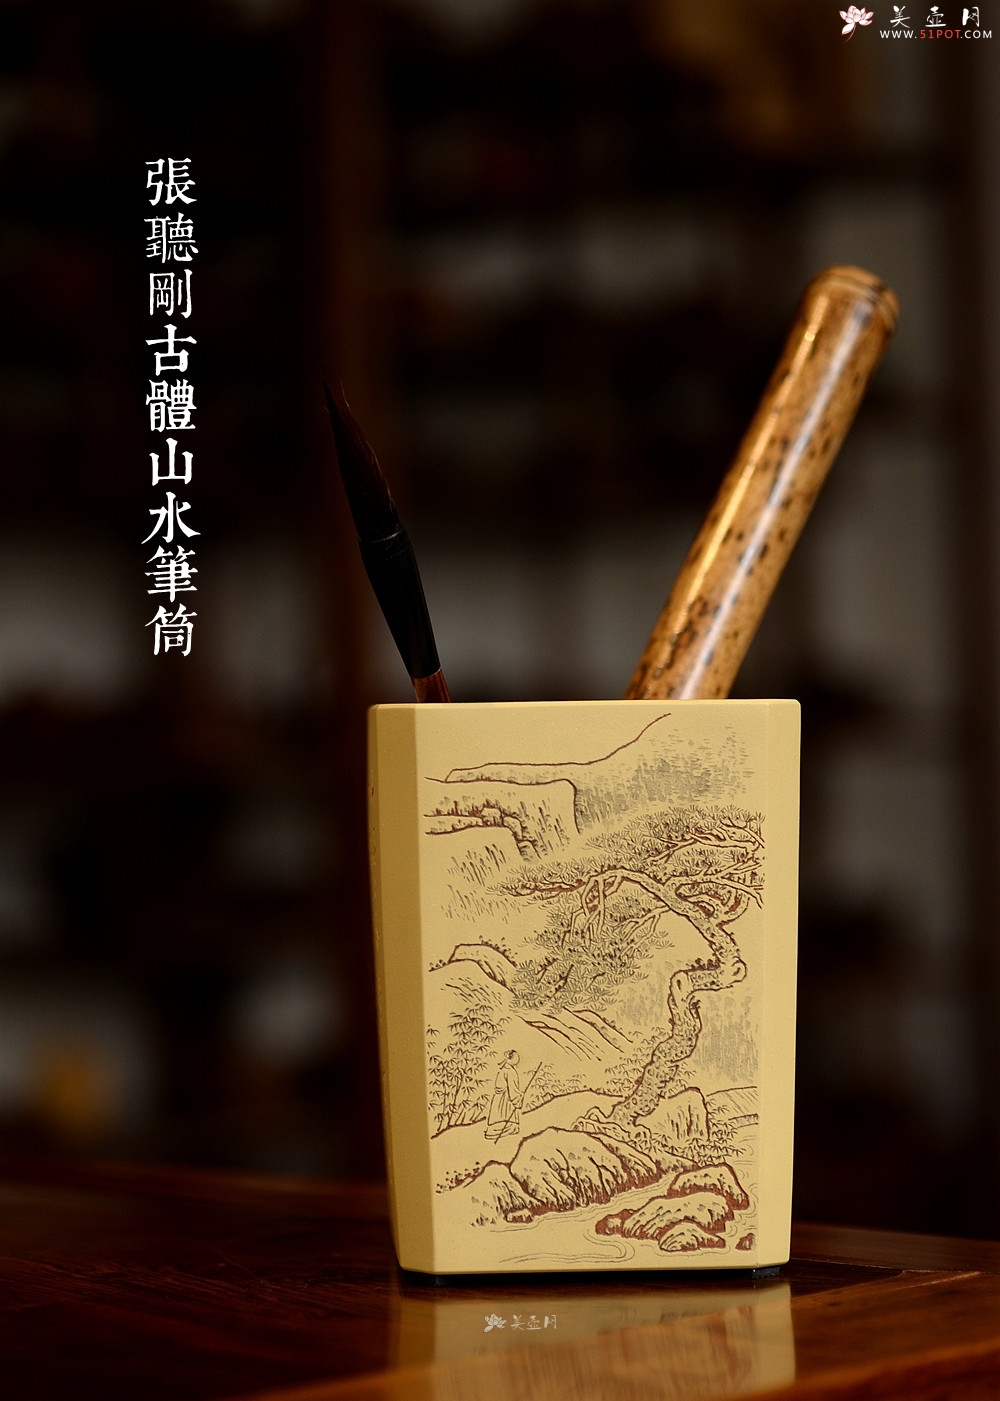 美壶网
WWW.51POT.COM
張聽剛古體山水筆筒
美壶网